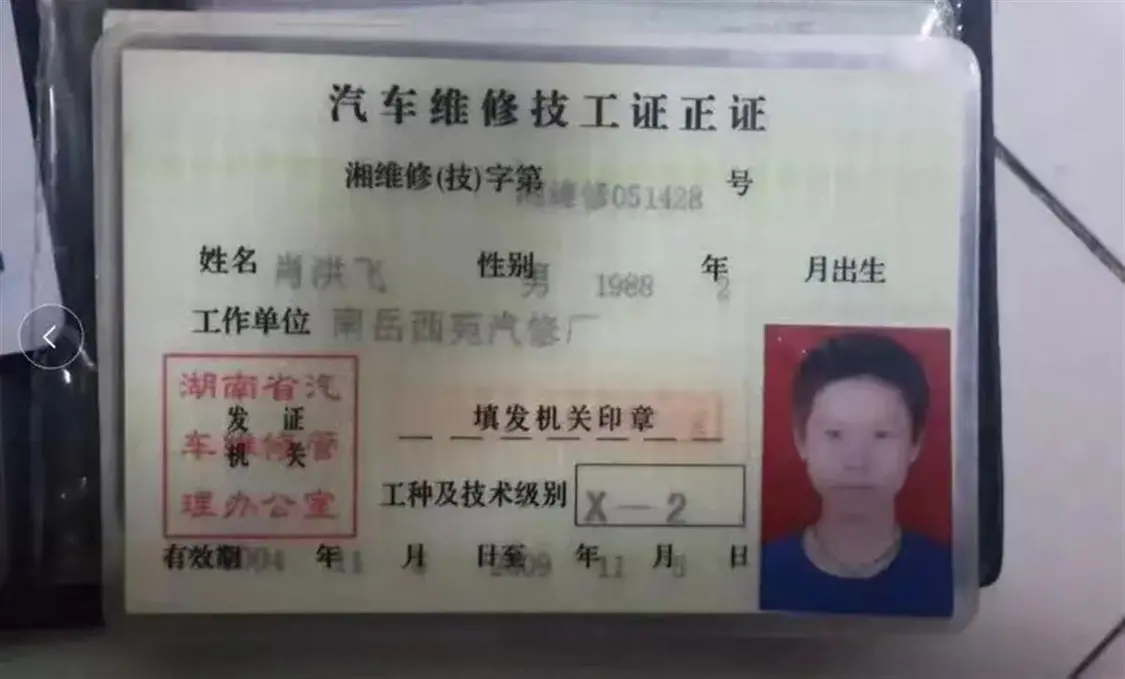 汽车维修技工证正证
湘维修(技)字第湘维修051428号
姓名 肖洪飞 性别 男 1988 年 2 月出生
工作单位 南岳西苑汽修厂
湖南省汽
车维修管
理办公室
发证
机关
填发机关印章
工种及技术级别 X—2
有效期 2004 年 11 月 日至 2009 年 11 月 5 日